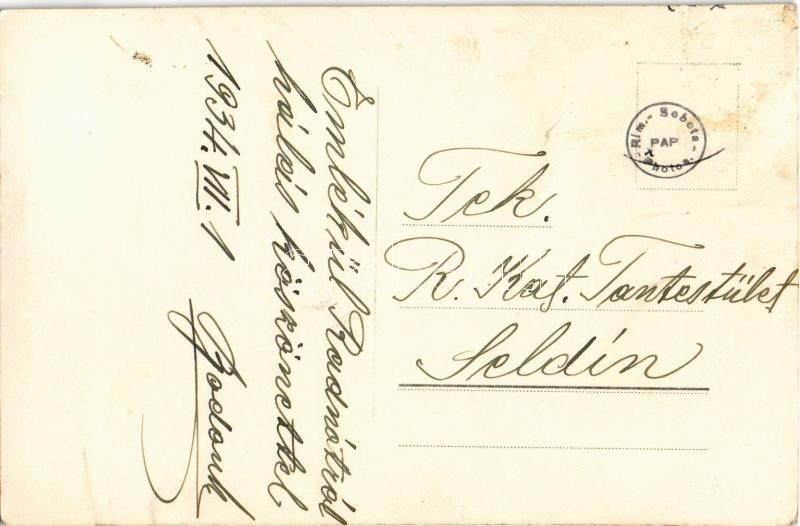 Emlékül Radnótról
hálás köszönettel
1934. VII. 1
Bodonk
Rim.- Sobota -
PAP
Photo
Tek.
R. Kat. Tantestület
Feldín